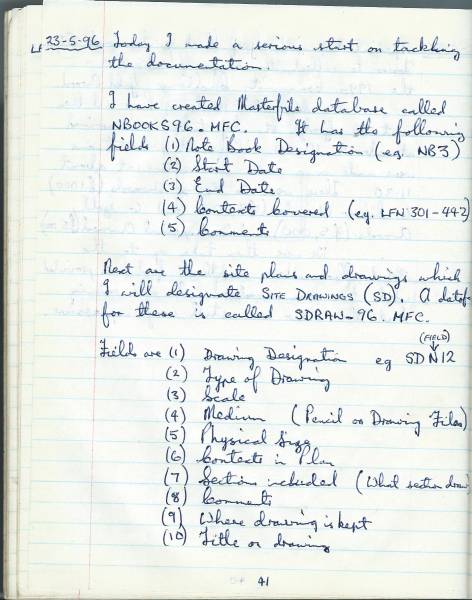 LF 23-5-96 Today I made a serious start on tackling
the documentation.
I have created Masterfile database called
NBOOKS96.MFC. It has the following
fields (1) Note Book Designation (eg. NB3)
(2) Start Date
(3) End Date
(4) Contexts Covered (eg. LFN 301-442)
(5) Comments
Next are the site plans and drawings which
I will designate SITE DRAWINGS (SD). A datef
for these is called SDRAW-96.MFC.
(FIELD)
Fields are (1) Drawing Designation eg SDN12
(2) Type of Drawing
(3) Scale
(4) Medium (Pencil or Drawing Files)
(5) Physical Size
(6) Contexts in Plan
(7) Sections included (What section draw
(8) Comments
(9) Where drawing is kept
(10) Title on drawing
41